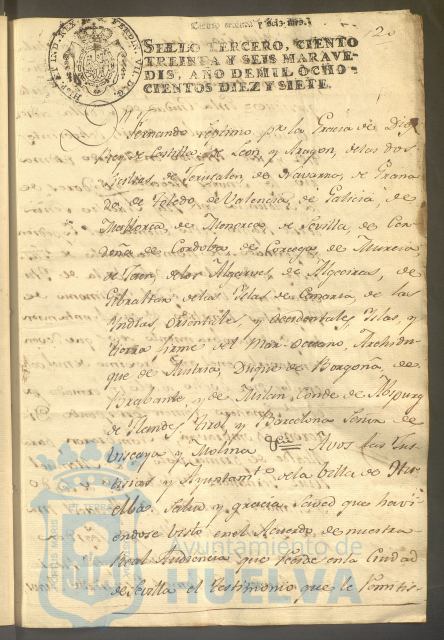 2
SELLO TERCERO, CIENTO
TREINTA Y SEIS MARAVE-
DIS, AÑO DE MIL OCHO-
CIENTOS DIEZ Y SIETE.
Fernando Septimo por la Gracia de Dios
Rey de Castilla, de Leon y Aragon, de las dos
Sicilias, de Jerusalen, de Navarra, de Grana
da de Toledo, de Valencia, de Galicia, de
Mallorca, de Menorca, de Sevilla, de Cer-
deña de Cordoba, de Corcega de Murcia
de Jaen, de los Algarves, de Algeciras, de
Gibraltar de las Islas de Canaria, de las
Indias, Orientales y Occidentales Islas, y
tierra firme del Mar Oceano, Archidu-
que de Austria, Duque de Borgoña, de
Brabante y de Milan, Conde de Abspurg
de Flandes Tirol, y Barcelona Señor de
Viscaya y Molina A vos las Jus
ticias y Ayuntamto. de la Villa de Hu
elba, Salud y gracia: Saved que havi
endose visto en el Acuerdo de nuestra
Real Audiencia que reside en la Ciudad
de Sevilla el Testimonio que le remitis-
Ayuntamiento de
HUELVA